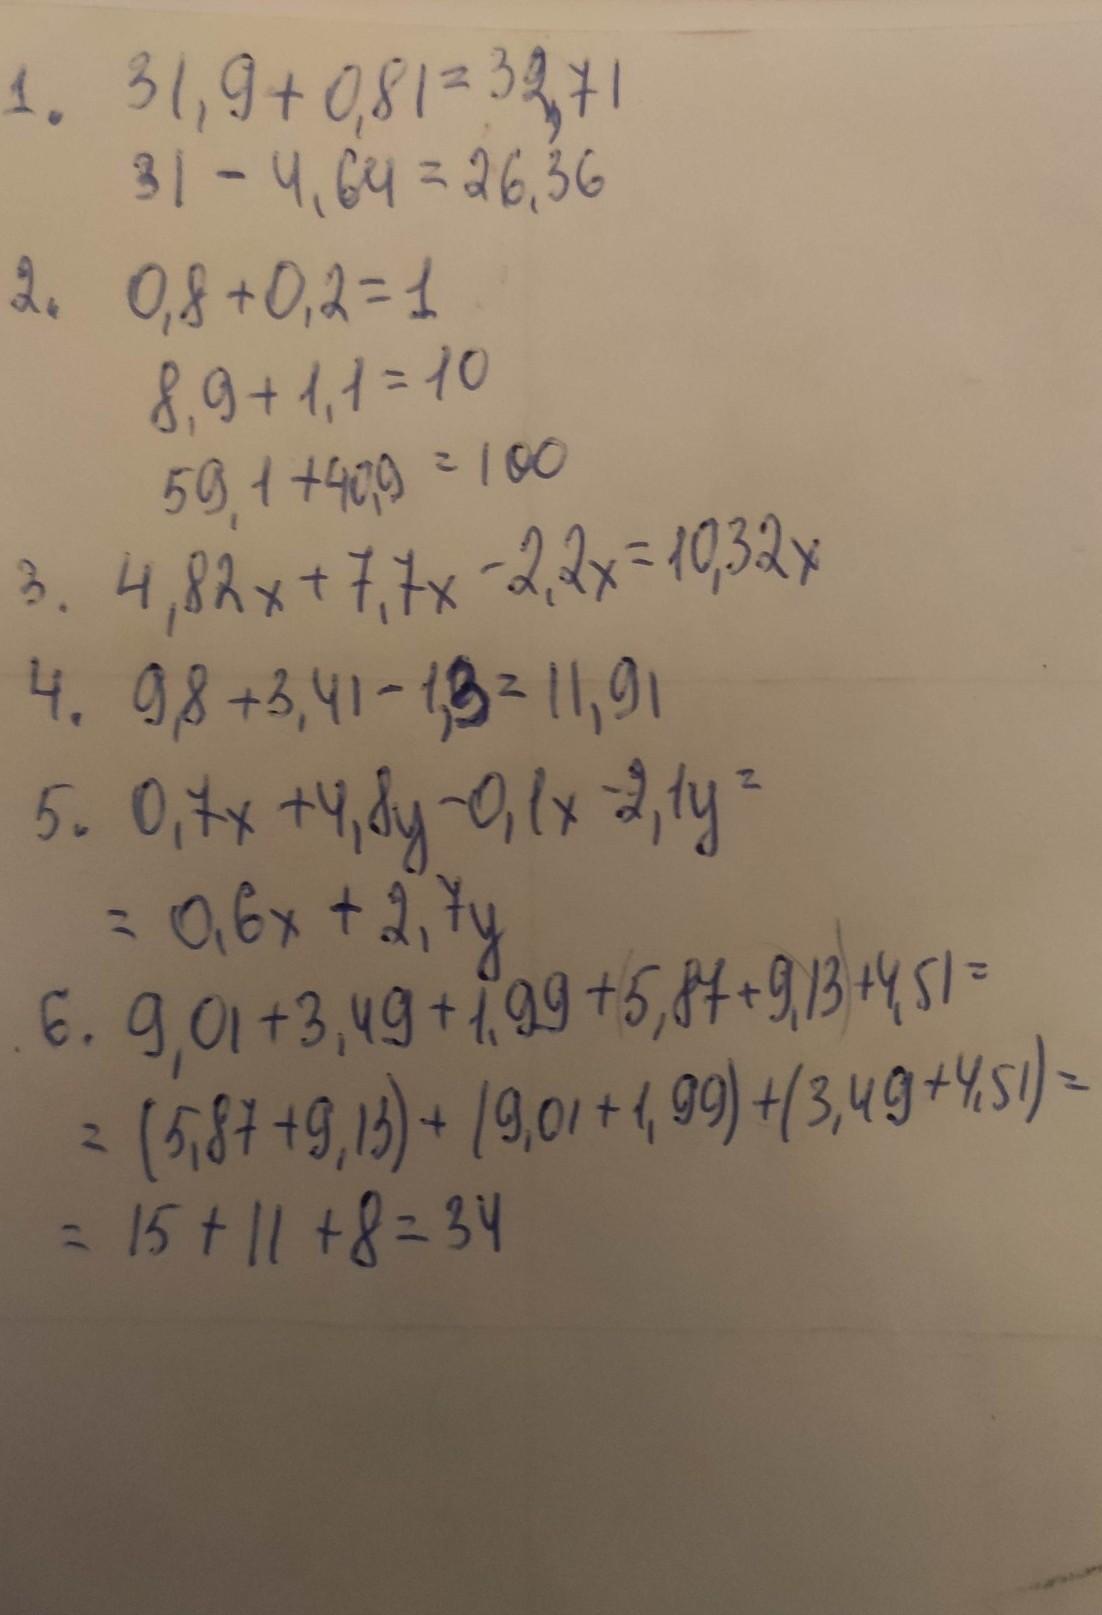 1. 31,9+0,81=32,71
31-4,64=26,36
2. 0,8+0,2=1
8,9+1,1=10
59,1+40,9=100
3. 4,82x+7,7x-2,2x=10,32x
4. 9,8+3,41-1,3=11,91
5. 0,7x+4,8y-0,1x-2,1y=
= 0,6x+2,7y
6. 9,01+3,49+1,99+(5,87+9,13)+4,51=
= (5,87+9,13)+(9,01+1,99)+(3,49+4,51)=
= 15+11+8=34